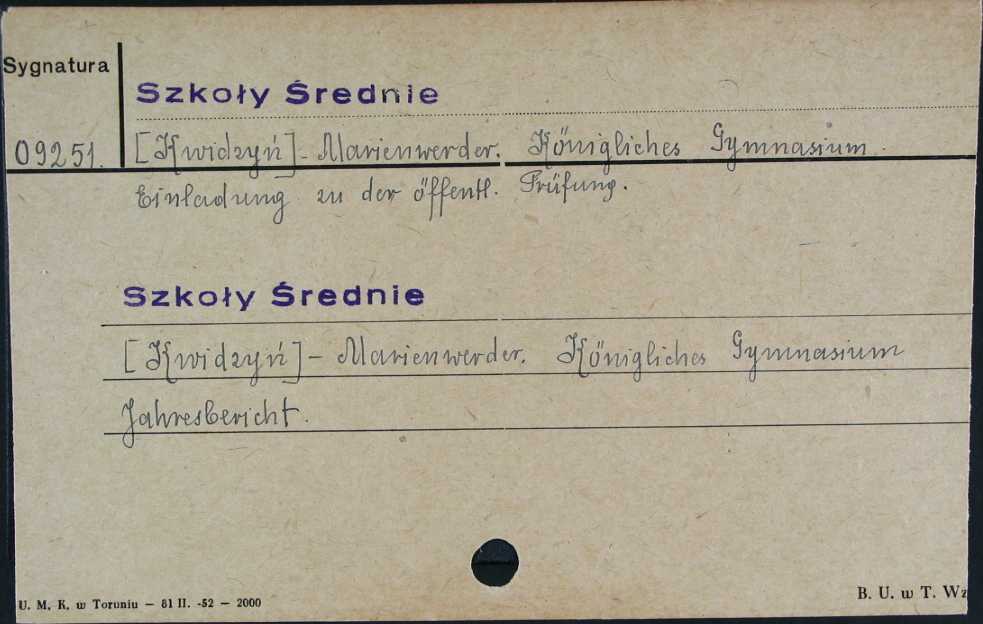 Sygnatura
Szkoły Średnie
09251. [Kwidzyń] - Marienwerder. Königliches Gymnasium.
Einladung zu der öffentl. Prüfung.
Szkoły Średnie
[Kwidzyń] - Marienwerder. Königliches Gymnasium
Jahresbericht.
U. M. K. w Toruniu — 81 II. -52 — 2000
B. U. w T. Wz